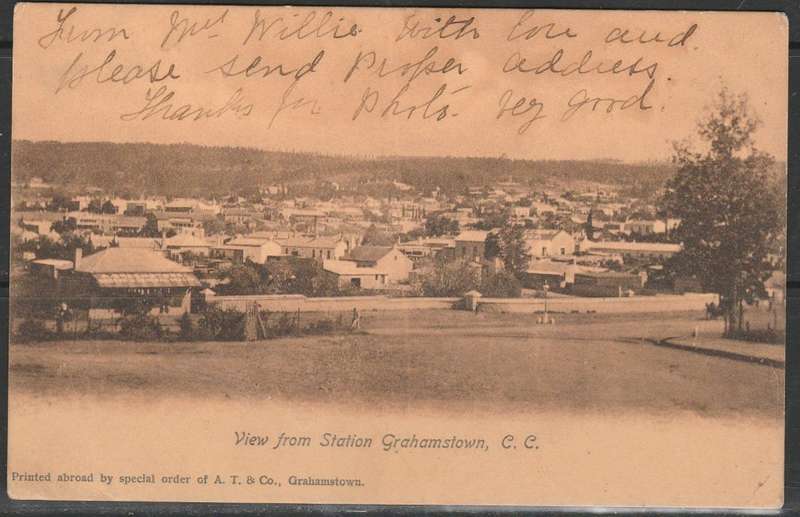 From Mrs Willie With love and
please send Proper address.
Thanks for Photo. Vey good.
View from Station Grahamstown, C. C.
Printed abroad by special order of A. T. & Co., Grahamstown.